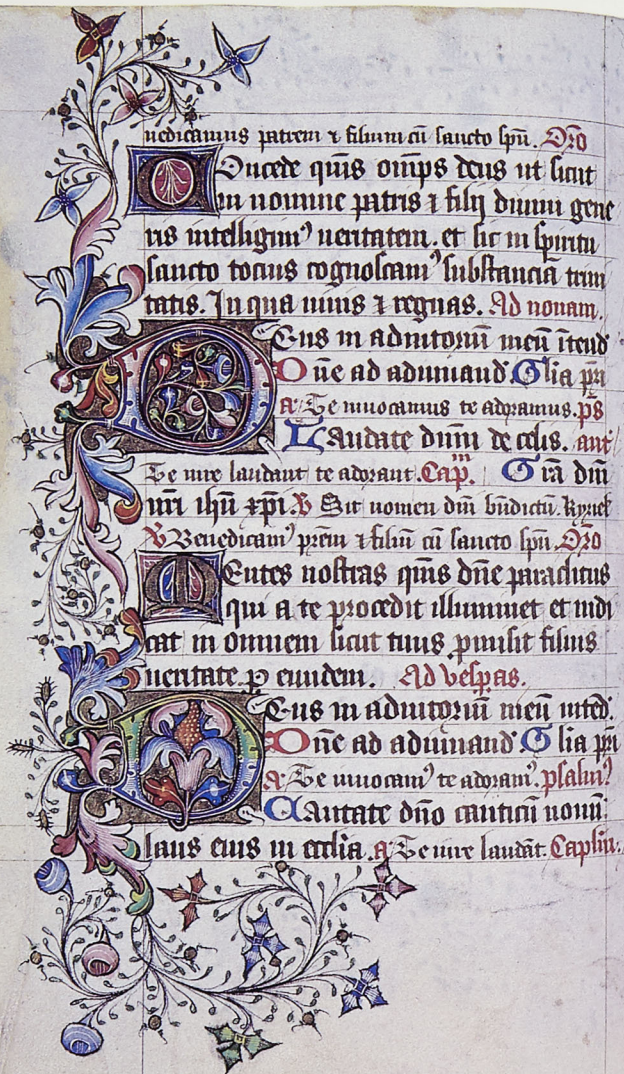 nedicamus patrem ⁊ filium cū sancto spū. Oro
Concede q̄s om̄ps deus ut sicut
in nomine patris ⁊ filij diuini gene
ris intelligim⁹ ueritatem. et sic in spiritu
sancto tocius cognoscam⁹ substanciā trini
tatis. In qua uiuis ⁊ regnas. Ad nonam.
Deus in adiutoriū meū ītend
Dn̄e ad adiuuand Glia pr̄i
a Te inuocamus te adoramus. ps
Laudate dnm de celis. ant
Te iure laudant te adorant. Capm. Gr̄a dn̄i
nr̄i ihū xp̄i. V Sit nomen dn̄i bn̄dictū. kyriel
V Benedicam⁹ prem ⁊ filiū cū sancto spū. Oro
Mentes nostras q̄s dn̄e paraclitus
qui a te procedit illuminet et indu
cat in omnem sicut tuus ꝓmisit filius
ueritatē. ꝑ eundem. Ad vesꝑas.
Deus in adiutoriū meū inted.
Dn̄e ad adiuuand Glia pr̄i
a Te inuocam⁹ te adoram⁹. psalm⁹
Cantate dn̄o canticū nouū:
laus eius in ecclia. a Te iure laudāt. Caplm.